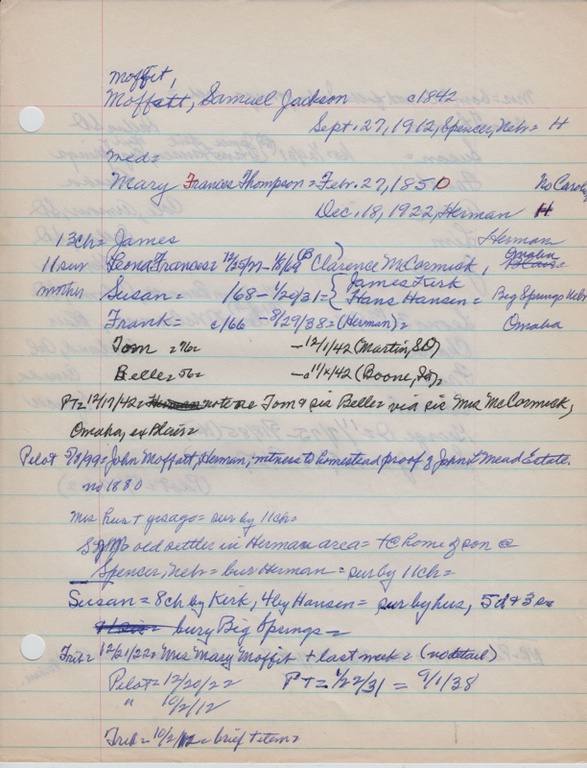 Moffit,
Moffatt, Samuel Jackson c1842
Sept. 27, 1912, Spencer, Nebr = H
med =
Mary Frances Thompson = Febr. 27, 1850 No Carol
Dec. 18, 1922, Herman H
13 ch = James Herman
11 sur Leona Frances = 12/25/77 - 1/8/69 Clarence McCormick, Omaha
mother Susan = 168 - 1/20/31 = { James Kirk
Hans Hansen = Big Springs Nebr
Frank = c/66 - 8/29/38 = (Herman) = Omaha
Tom = - 12/1/42 (Martin, SD)
Belle = - 11/x/42 (Boone, Ia) =
PT = 12/17/42 = note re Tom & sis Belle = via sis Mrs McCormick,
Omaha, ex Blair =
Pilot = John Moffatt, Herman, witness to homestead proof of John L Mead Estate.
no 1880
Mrs hus + yrs ago = sur by 11 ch =
SJM old settler in Herman area = + @ home of son @
Spencer, Nebr = bur Herman = sur by 11 ch =
Susan = 8 ch by Kirk, 4 by Hansen = sur by hus, 5 d + 3 s
bury Big Springs =
Trib = 12/21/22 = Mrs Mary Moffit + last week = (no detail)
Pilot = 12/20/22 PT = 1/22/31 = 9/1/38
" 10/2/12
Trib = 10/2/12 = brief + item =